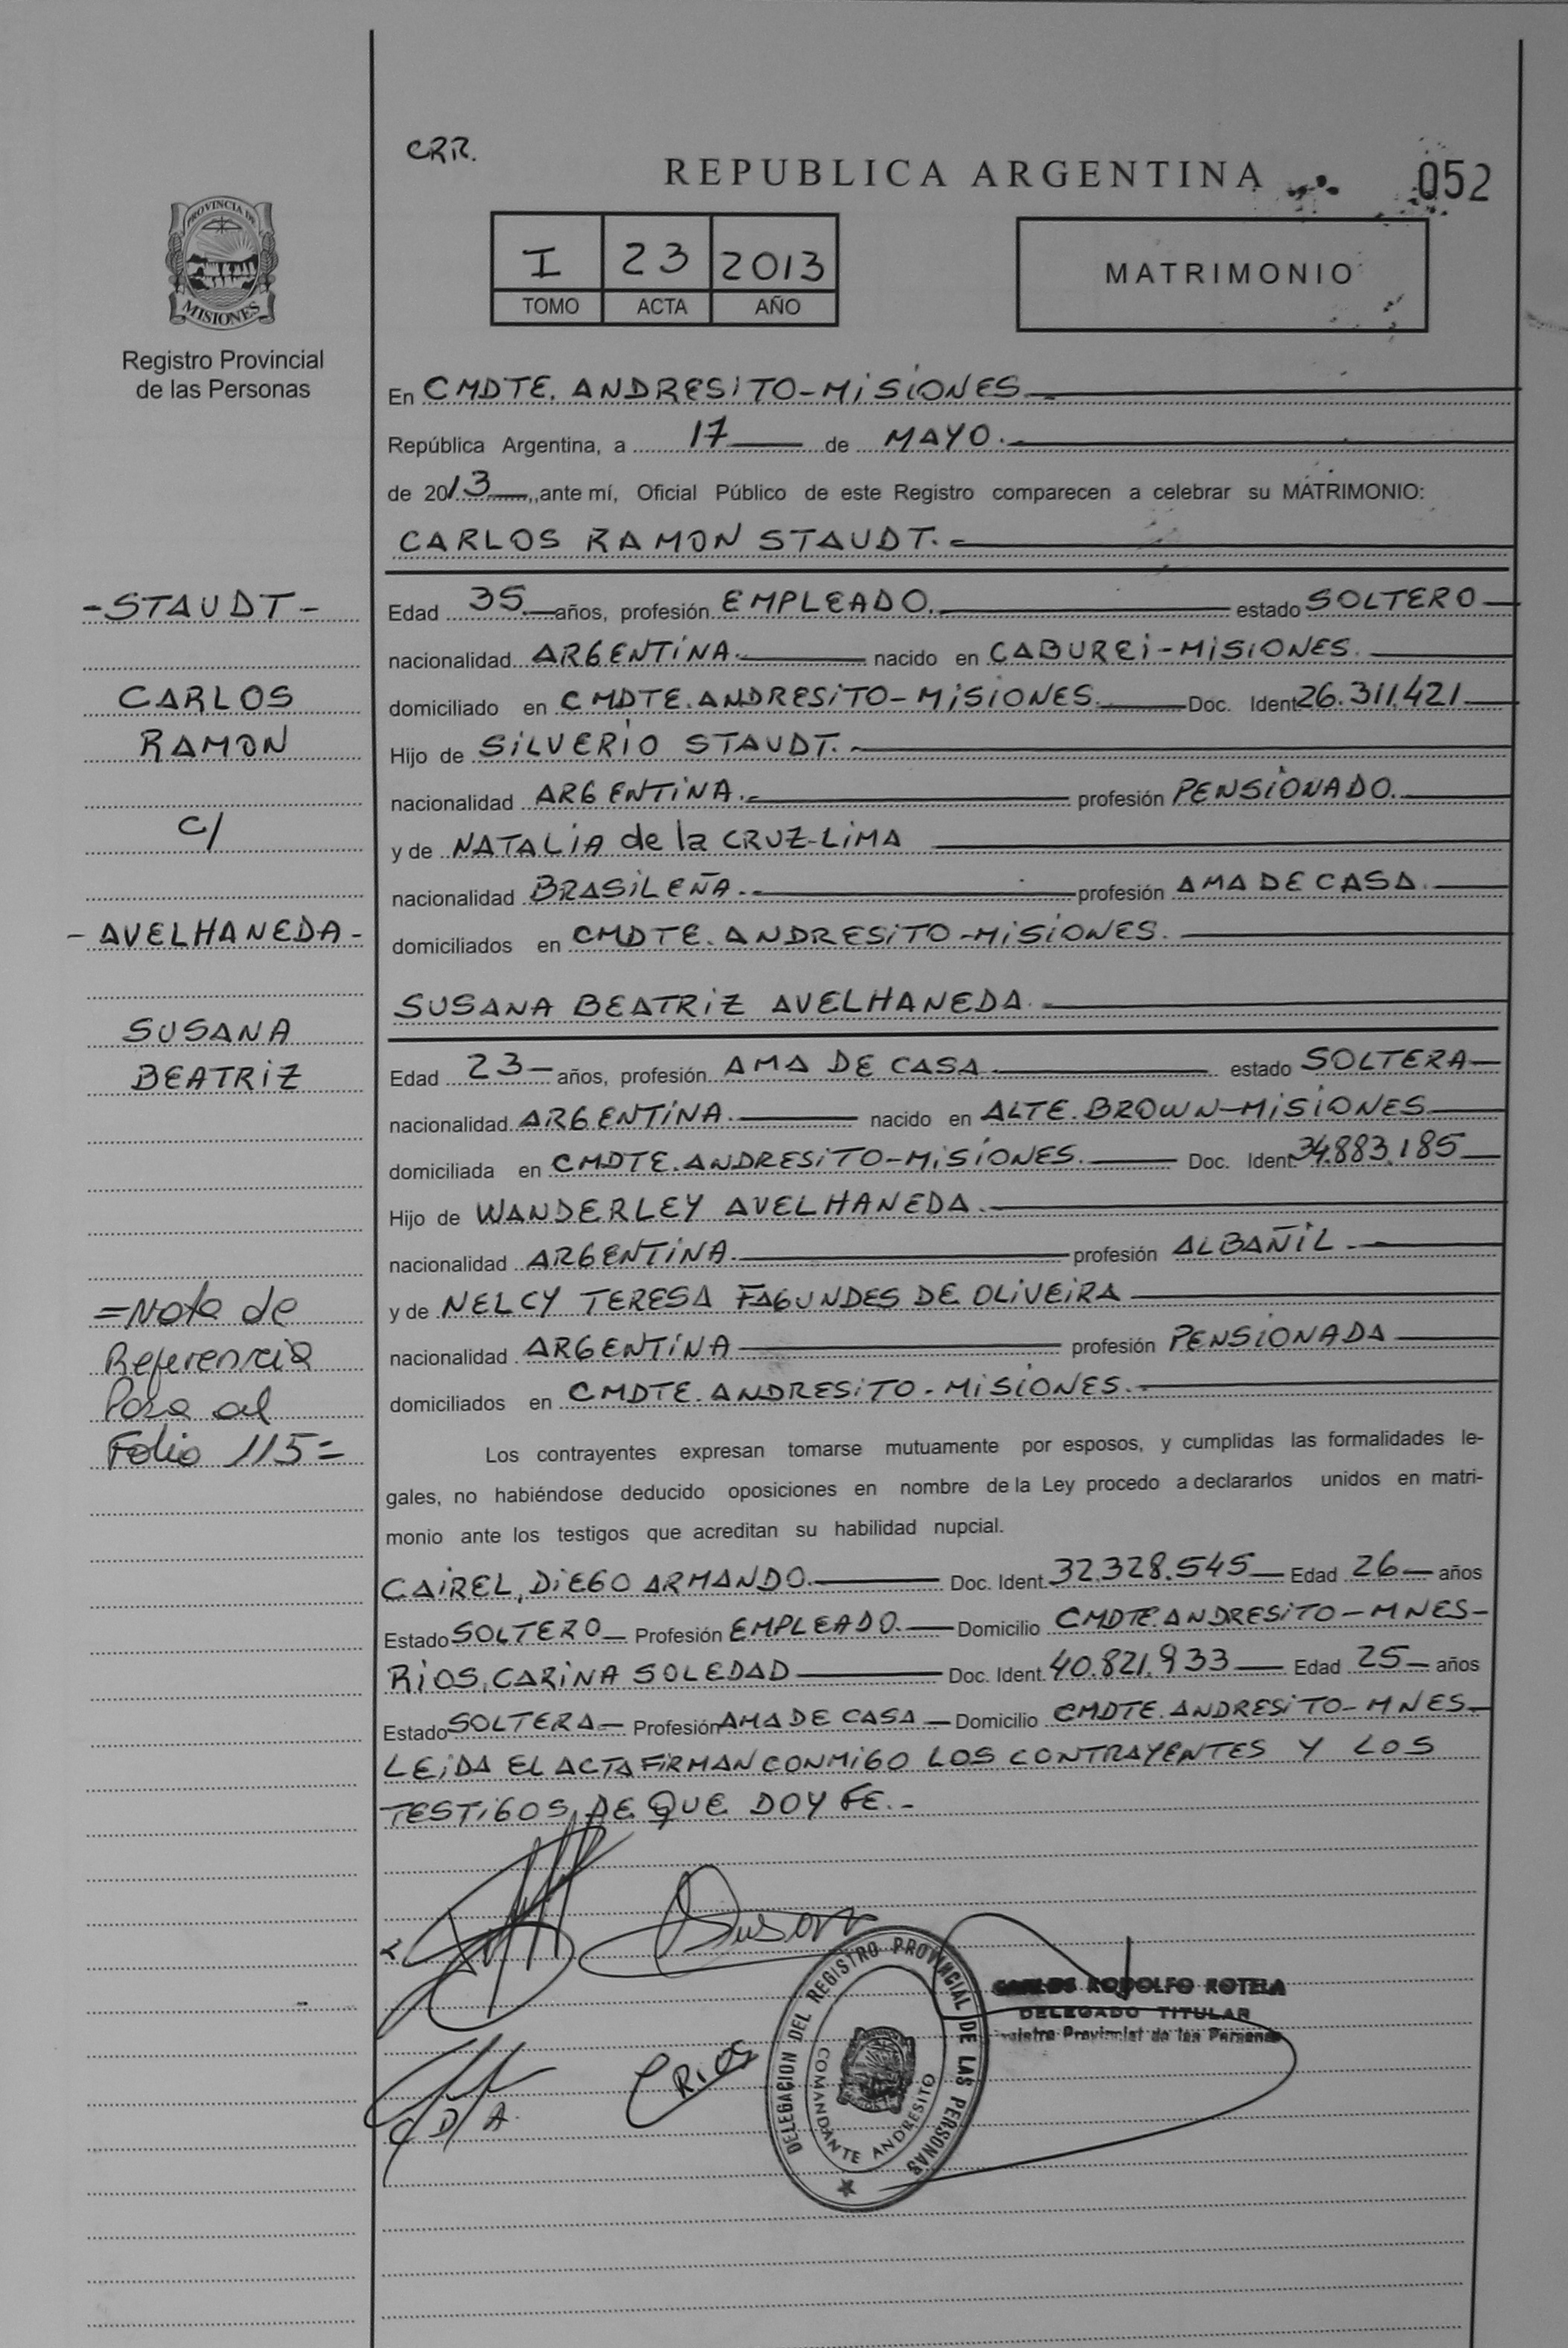 CRR.
REPUBLICA ARGENTINA
052
PROVINCIA DE
MISIONES
Registro Provincial
de las Personas
I 23 2013
TOMO ACTA AÑO
MATRIMONIO
En CMDTE. ANDRESITO-MISIONES
República Argentina, a 17 de MAYO.
de 2013, ante mí, Oficial Público de este Registro comparecen a celebrar su MATRIMONIO:
CARLOS RAMON STAUDT.
-STAUDT-
CARLOS
RAMON
C/
-AVELHANEDA-
SUSANA
BEATRIZ
=Nota de
Referencia
Pasa al
Folio 115=
Edad 35 años, profesión EMPLEADO. estado SOLTERO
nacionalidad ARGENTINA. nacido en CABUREI-MISIONES.
domiciliado en CMDTE. ANDRESITO-MISIONES. Doc. Ident. 26.311.421
Hijo de SILVERIO STAUDT.
nacionalidad ARGENTINA. profesión PENSIONADO.
y de NATALIA de la CRUZ-LIMA
nacionalidad BRASILEÑA. profesión AMA DE CASA.
domiciliados en CMDTE. ANDRESITO-MISIONES.
SUSANA BEATRIZ AVELHANEDA.
Edad 23 años, profesión AMA DE CASA estado SOLTERA
nacionalidad ARGENTINA. nacido en ALTE. BROWN-MISIONES
domiciliada en CMDTE. ANDRESITO-MISIONES. Doc. Ident. 34.883.185
Hijo de WANDERLEY AVELHANEDA.
nacionalidad ARGENTINA. profesión ALBAÑIL.
y de NELCY TERESA FAGUNDES DE OLIVEIRA
nacionalidad ARGENTINA profesión PENSIONADA
domiciliados en CMDTE. ANDRESITO-MISIONES.
Los contrayentes expresan tomarse mutuamente por esposos, y cumplidas las formalidades le-
gales, no habiéndose deducido oposiciones en nombre de la Ley procedo a declararlos unidos en matri-
monio ante los testigos que acreditan su habilidad nupcial.
CAIREL, DIEGO ARMANDO. Doc. Ident. 32.328.545 Edad 26 años
Estado SOLTERO Profesión EMPLEADO. Domicilio CMDTE. ANDRESITO-MNES-
RIOS, CARINA SOLEDAD Doc. Ident. 40.821.933 Edad 25 años
Estado SOLTERA Profesión AMA DE CASA Domicilio CMDTE. ANDRESITO-MNES-
LEIDA EL ACTA FIRMAN CONMIGO LOS CONTRAYENTES Y LOS
TESTIGOS, DE QUE DOY FE.-
Susana
CRIOS
C D A.
DELEGACION DEL REGISTRO PROVINCIAL DE LAS PERSONAS
COMANDANTE ANDRESITO
CARLOS RODOLFO ROTELA
DELEGADO TITULAR
Registro Provincial de las Personas